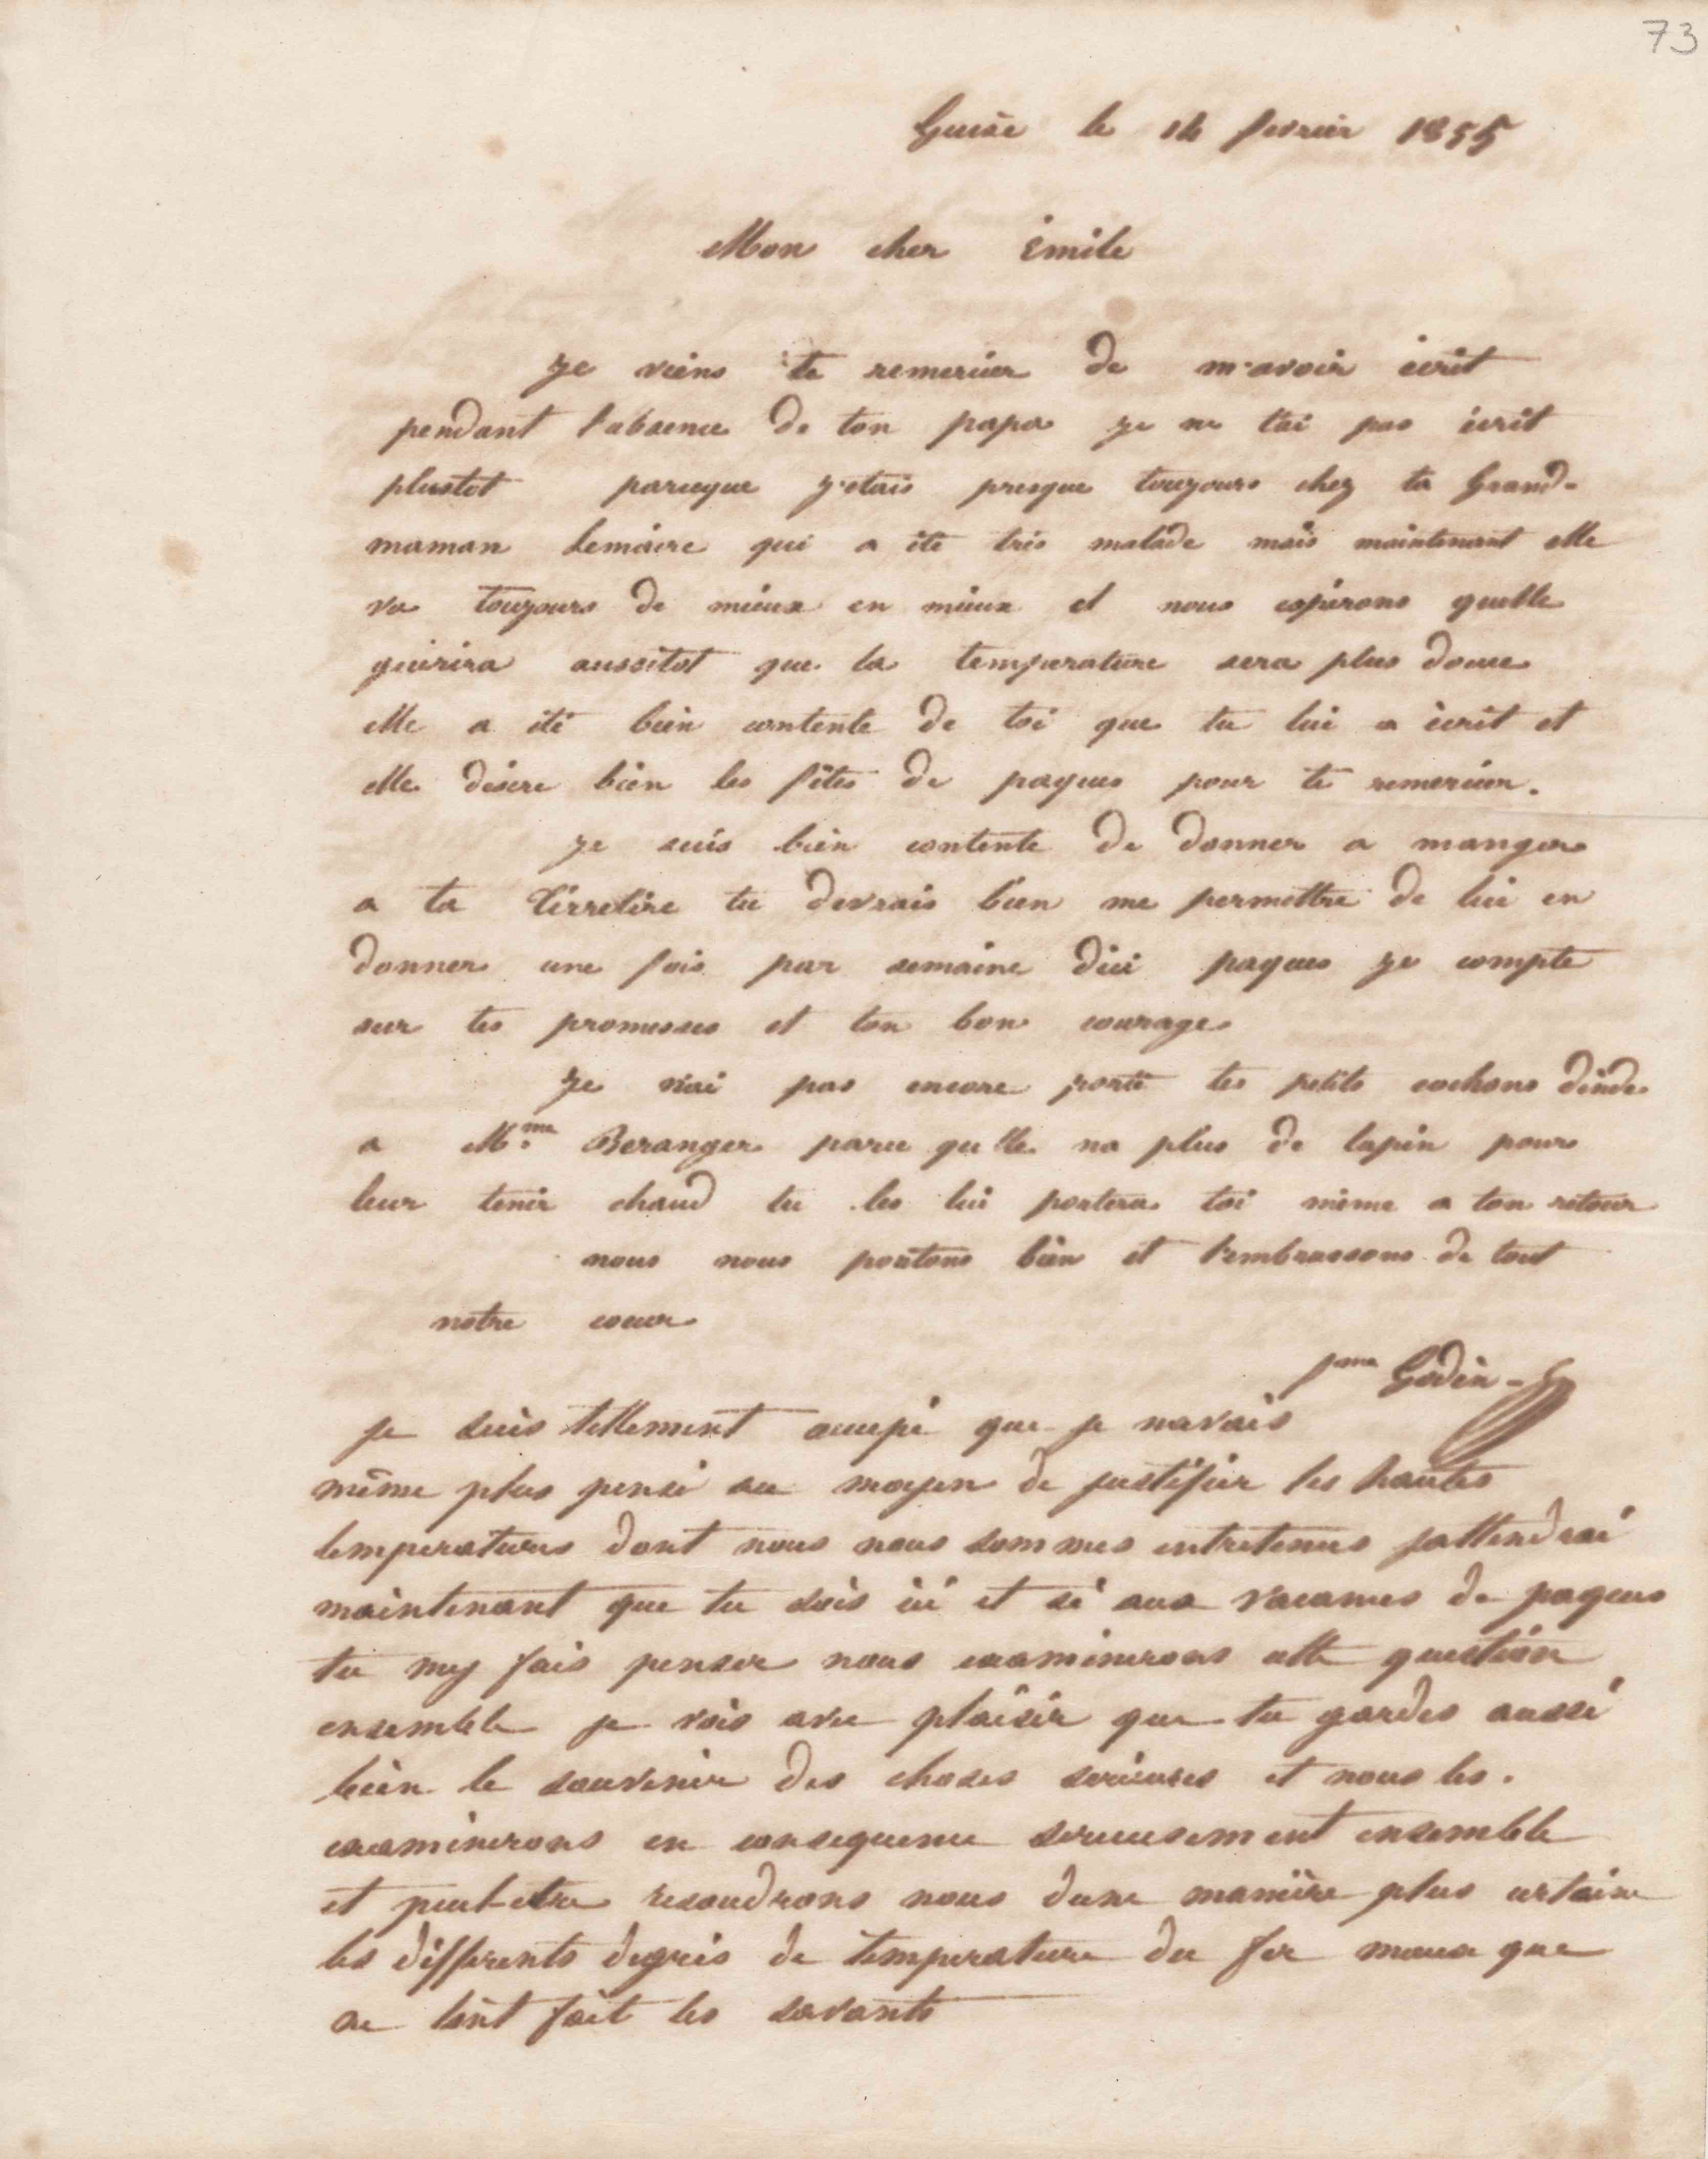 73
Guise le 14 fevrier 1855
Mon cher Emile
Je viens te remercier de m'avoir écrit
pendant l'absence de ton papa je ne tai pas écrit
plustot parceque j'etais presque toujours chez ta Grand-
maman Lemaire qui a été très malade mais maintenant elle
va toujours de mieux en mieux et nous espérons quelle
guérira aussitot que la temperature sera plus douce
elle a été bien contente de toi que tu lui a écrit et
elle désire bien les fêtes de paques pour te remercier.
Je suis bien contente de donner a manger
a ta Tirrelire tu devrais bien me permettre de lui en
donner une fois par semaine dici paques je compte
sur tes promesses et ton bon courage
Je n'ai pas encore porté tes petits cochons dinde
a Mme Beranger parce quelle na plus de lapin pour
leur tenir chaud tu les lui portera toi même a ton retour
nous nous portons bien et t'embrassons de tout
notre coeur
fme Godin
je suis tellement occupé que je navais
même plus pensé au moyen de justifier les hautes
temperatures dont nous nous sommes entretenus jattendrai
maintenant que tu sois ici et si aux vacances de paques
tu my fais penser nous examinerons cette question
ensemble je vois avec plaisir que tu gardes aussi
bien le souvenir des choses serieuses et nous les.
examinerons en consequence serieusement ensemble
et peut-etre resoudrons nous dune manière plus certaine
les differents degrés de temperature du fer mieux que
ne lont fait les savants